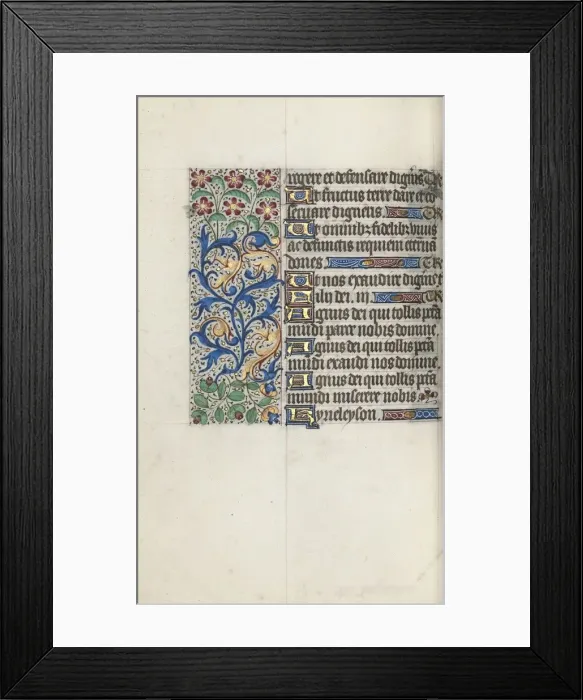 regere et defensare digneris TR
Ut fructus terre dare et co
servare digneris. OR
Ut omnibz fidelibz vivis
ac defunctis requiem eterna
dones TR
Ut nos exaudire digneris T
Fily dei. iij. TR
Agnus dei qui tollis pctā
mūdi parce nobis domine.
Agnus dei qui tollis pctā
mūdi exaudi nos domine.
Agnus dei qui tollis pctā
mundi miserere nobis.
Kyrieleyson.